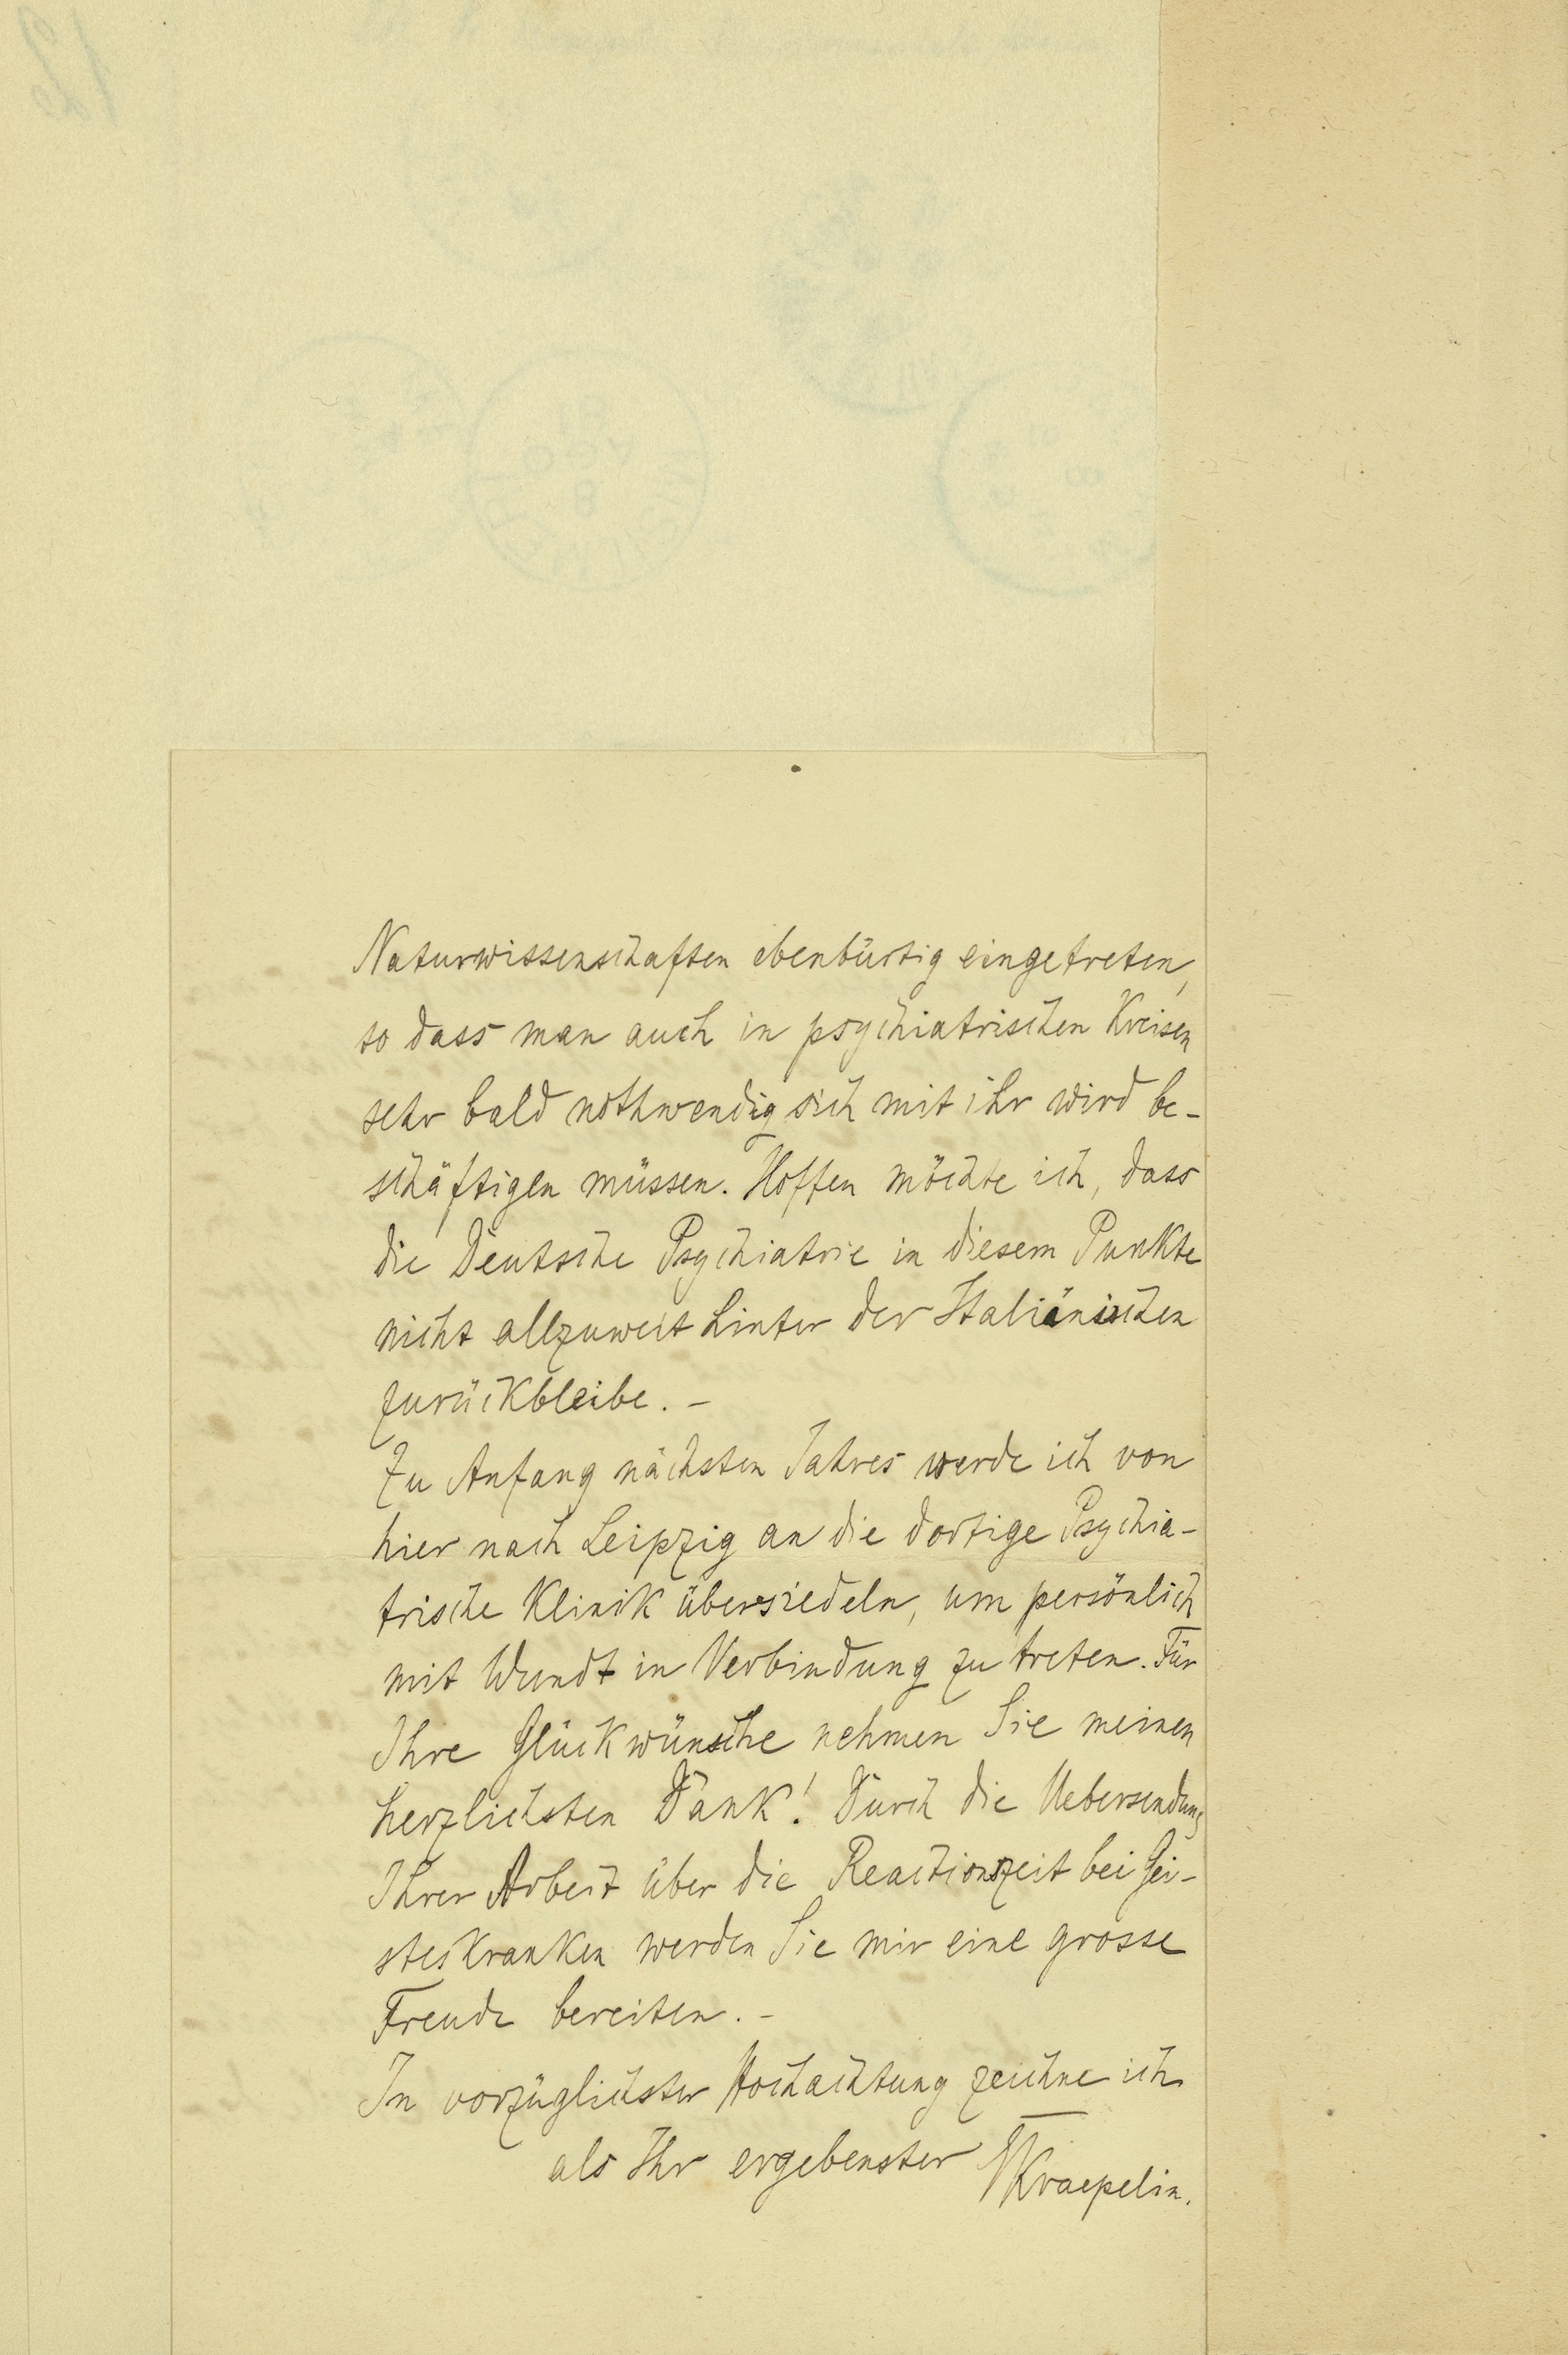 Naturwissenschaften ebenbürtig eingetreten,
so dass man auch in psychiatrischen Kreisen
sehr bald nothwendig sich mit ihr wird be-
schäftigen müssen. Hoffen möchte ich, dass
die Deutsche Psychiatrie in diesem Punkte
nicht allzuweit hinter der Italiänischen
zurückbleibe. –
Zu Anfang nächsten Jahres werde ich von
hier nach Leipzig an die dortige Psychia-
trische Klinik übersiedeln, um persönlich
mit Wundt in Verbindung zu treten. Für
Ihre Glückwünsche nehmen Sie meinen
herzlichsten Dank! Durch die Uebersendung
Ihrer Arbeit über die Reactionszeit bei Gei-
steskranken werden Sie mir eine grosse
Freude bereiten. –
In vorzüglichster Hochachtung zeichne ich
als Ihr ergebenster Kraepelin.